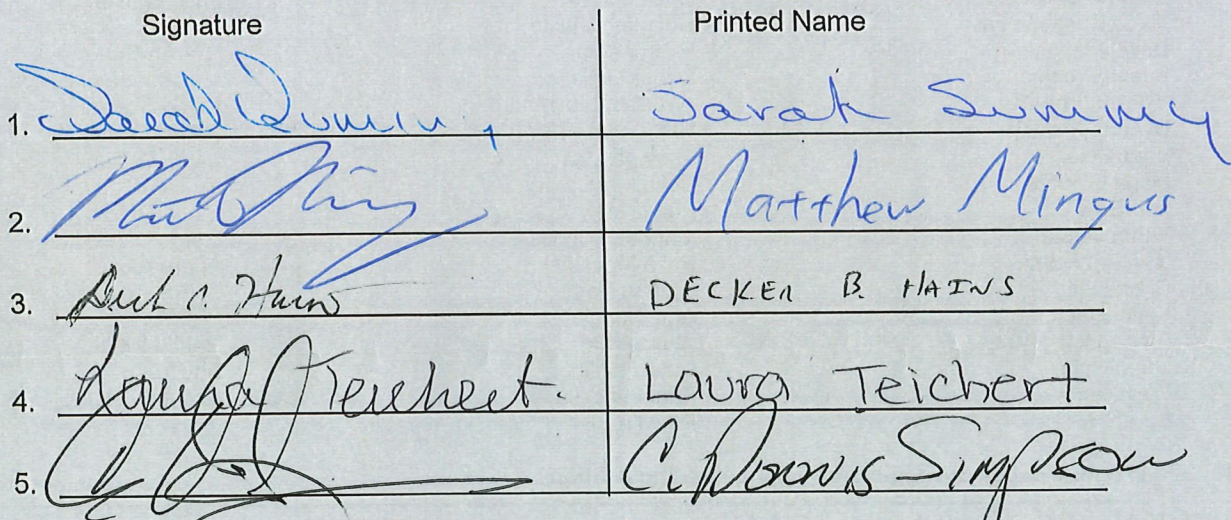 Signature Printed Name
1. Sarah Summy Sarah Summy
2. Matthew Mingus
3. Hains DECKER B. HAINS
4. Laura Teichert Laura Teichert
5. C. Dennis Simpson